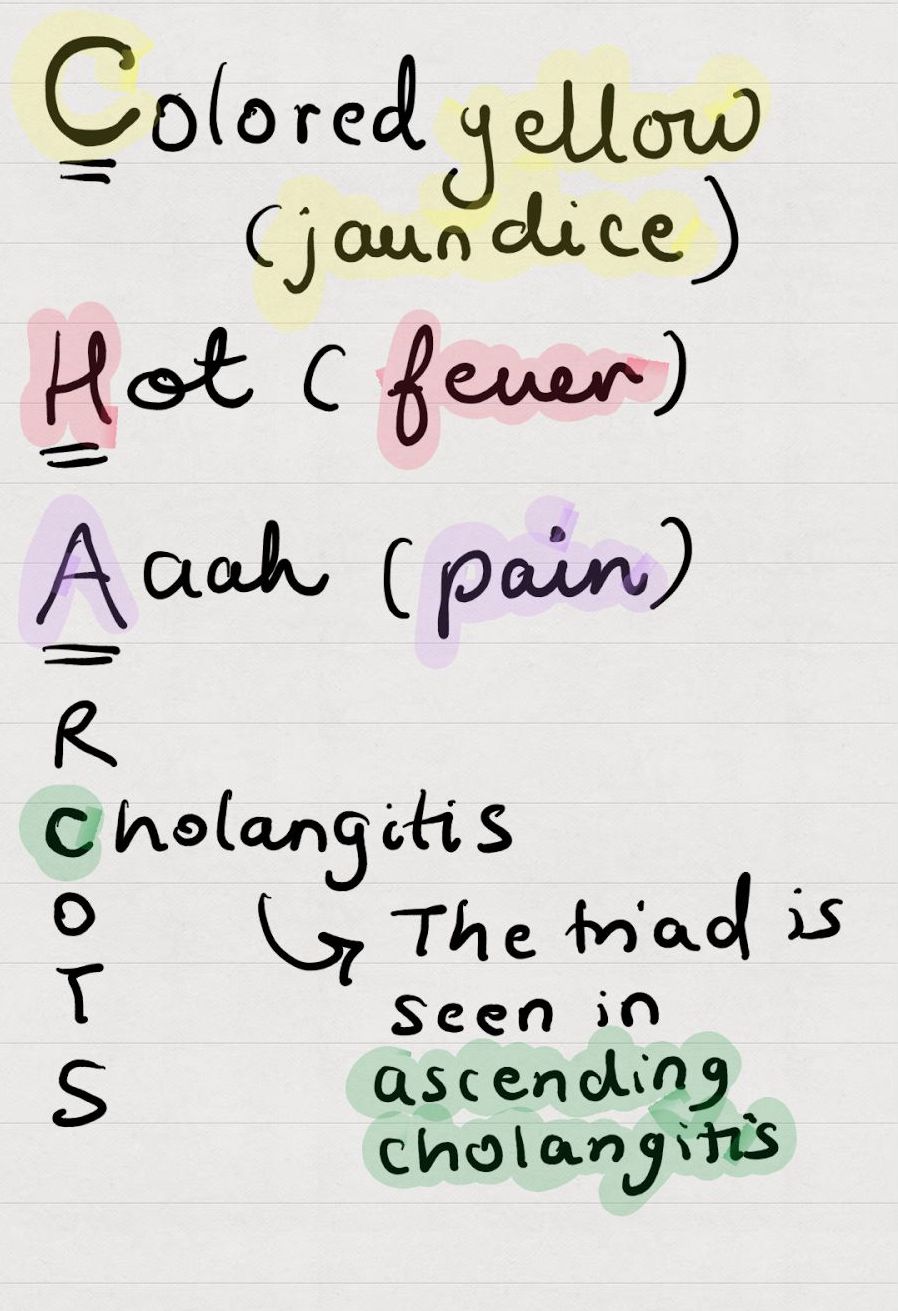 Colored yellow
(jaundice)
Hot (fever)
Aaah (pain)
R
Cholangitis
O
The triad is
T
seen in
S
ascending
cholangitis